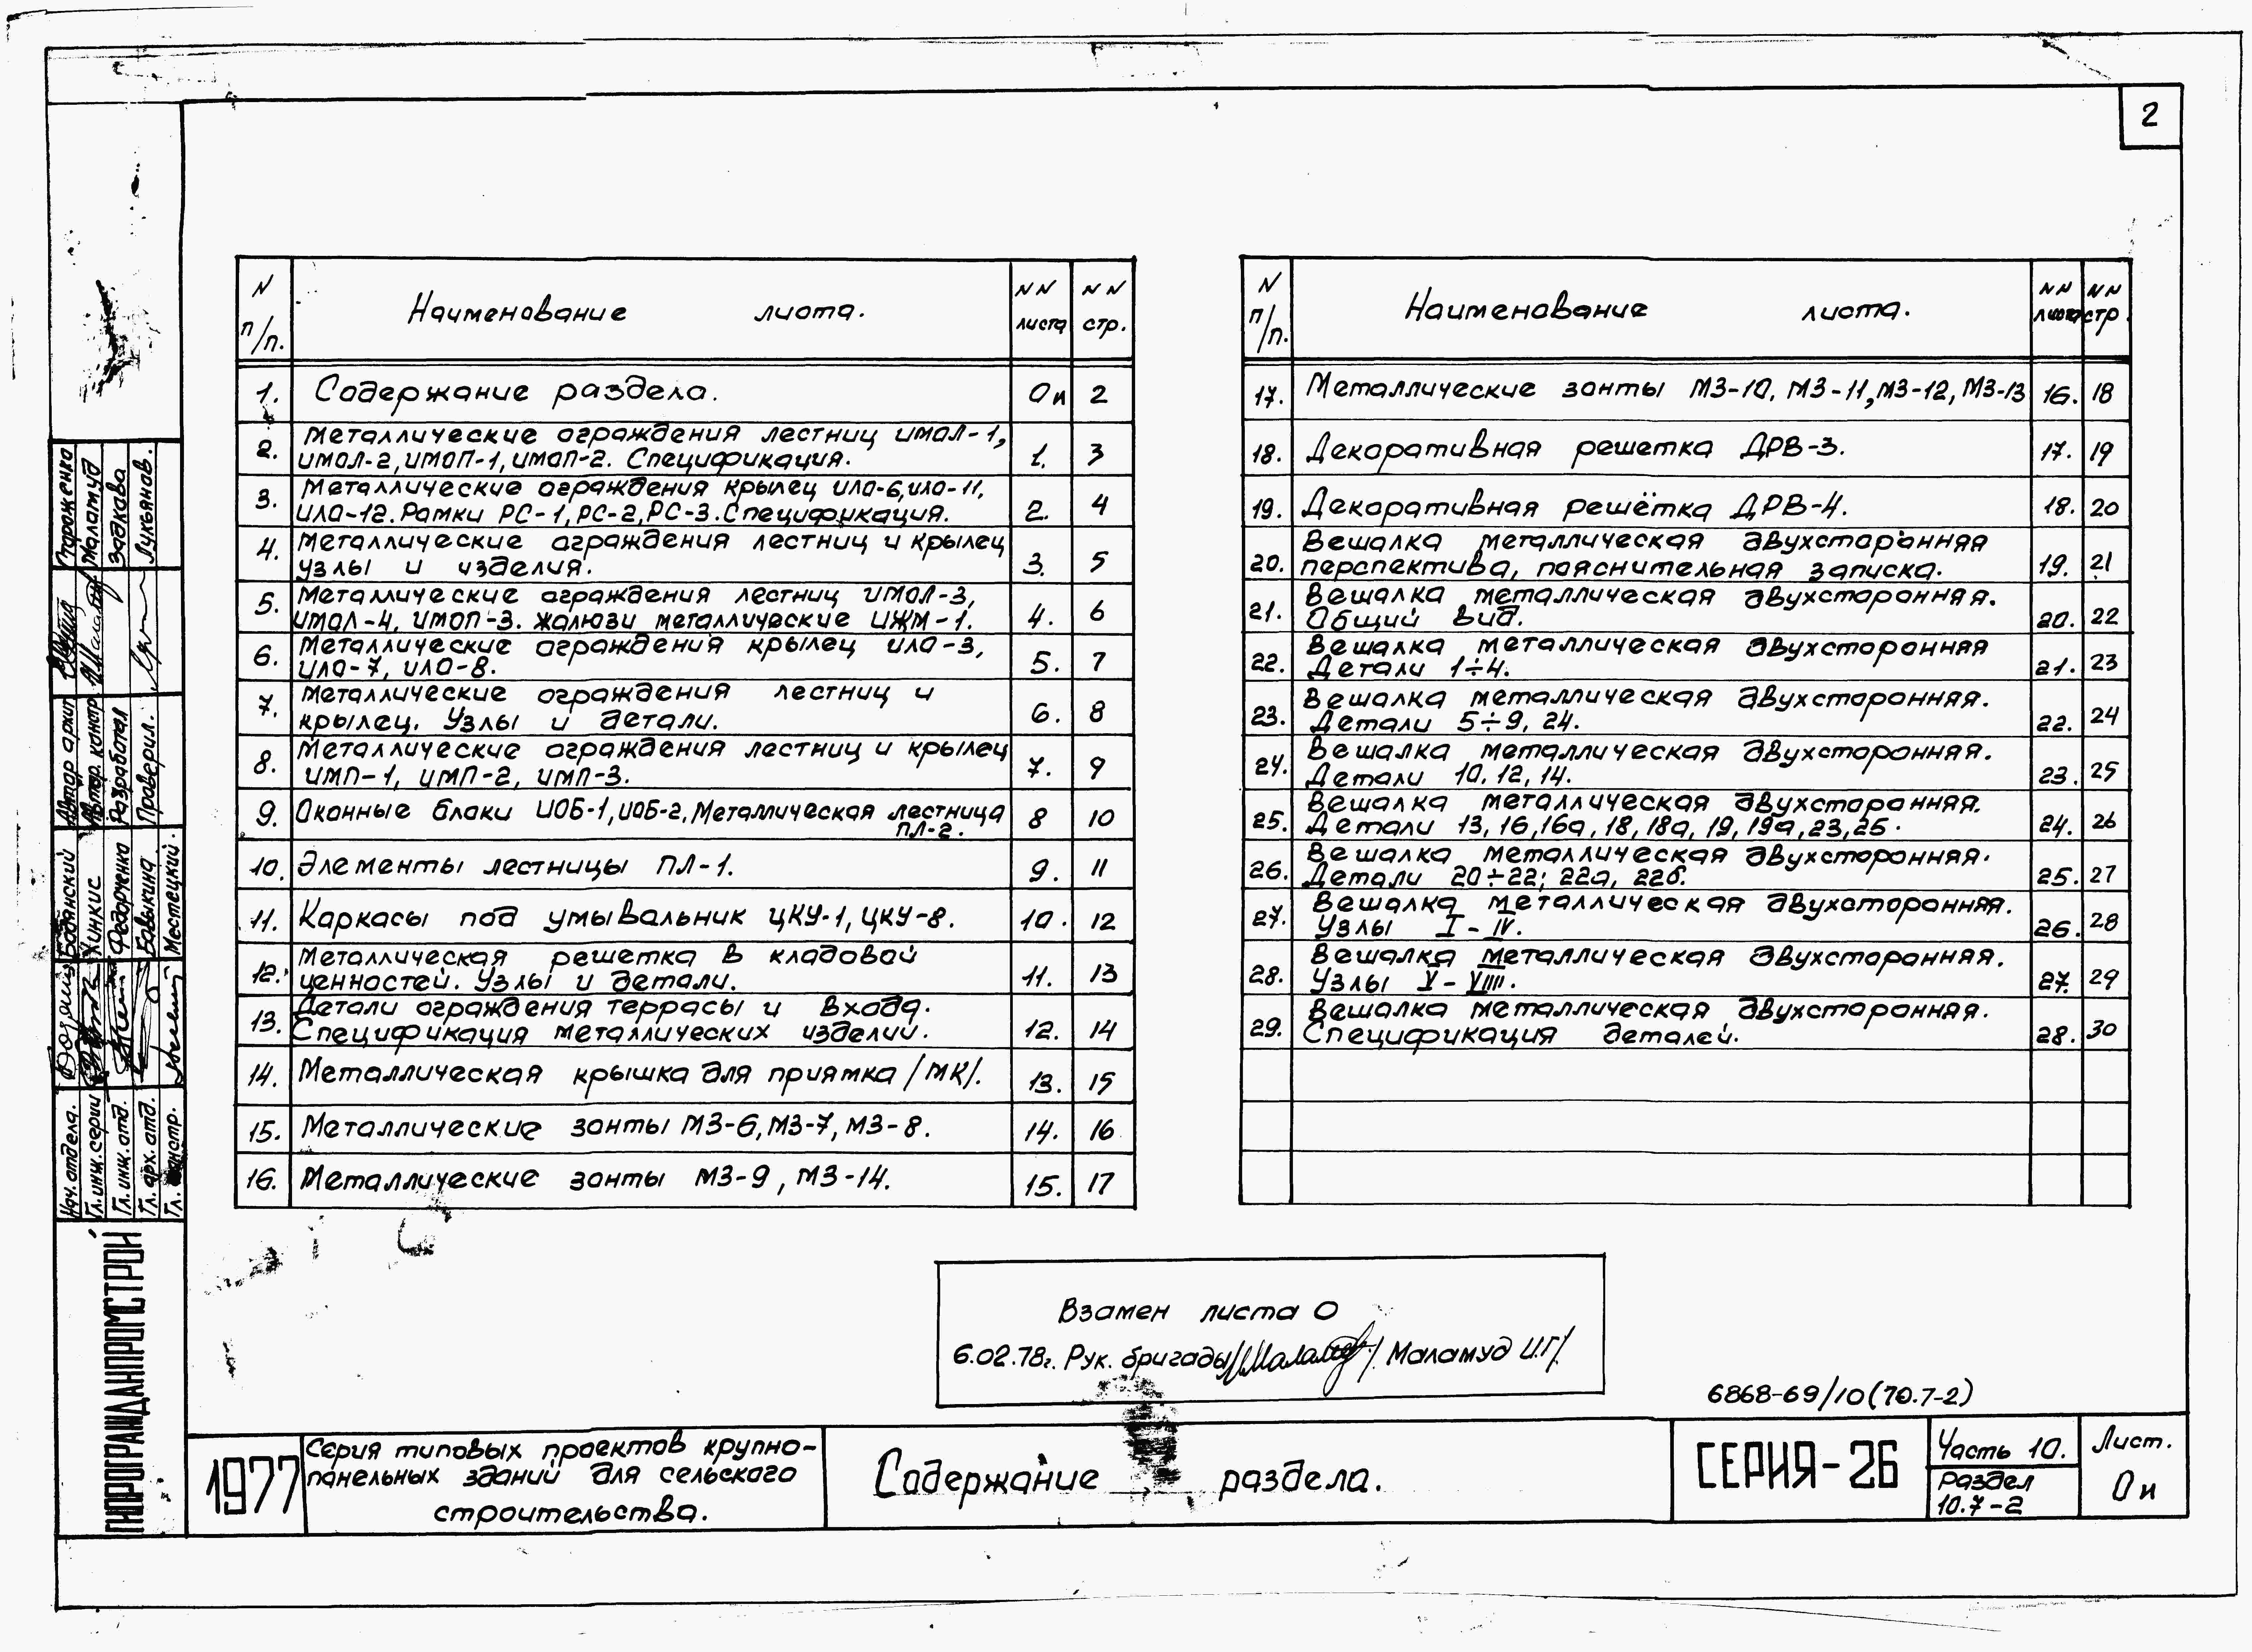 2
N п/п. Наименование листа. NN листа NN стр.
1. Содержание раздела. Ои 2
2. Металлические ограждения лестниц ИМОЛ-1,
ИМОЛ-2, ИМОП-1, ИМОП-2. Спецификация. 1. 3
3. Металлические ограждения крылец ИЛО-6, ИЛО-11,
ИЛО-12. Рамки РС-1, РС-2, РС-3. Спецификация. 2. 4
4. Металлические ограждения лестниц и крылец
узлы и изделия. 3. 5
5. Металлические ограждения лестниц ИМОЛ-3,
ИМОЛ-4, ИМОП-3. Жалюзи металлические ИЖМ-1. 4. 6
6. Металлические ограждения крылец ИЛО-3,
ИЛО-7, ИЛО-8. 5. 7
7. Металлические ограждения лестниц и
крылец. Узлы и детали. 6. 8
8. Металлические ограждения лестниц и крылец
ИМП-1, ИМП-2, ИМП-3. 7. 9
9. Оконные блоки ИОБ-1, ИОБ-2, Металлическая лестница
ПЛ-2. 8 10
10. Элементы лестницы ПЛ-1. 9. 11
11. Каркасы под умывальник ЦКУ-1, ЦКУ-8. 10. 12
12. Металлическая решетка в кладовой
ценностей. Узлы и детали. 11. 13
13. Детали ограждения террасы и входа.
Спецификация металлических изделий. 12. 14
14. Металлическая крышка для приямка /МК/. 13. 15
15. Металлические зонты МЗ-6, МЗ-7, МЗ-8. 14. 16
16. Металлические зонты МЗ-9, МЗ-14. 15. 17
N п/п. Наименование листа. NN листа NN стр.
17. Металлические зонты МЗ-10, МЗ-11, МЗ-12, МЗ-13 16. 18
18. Декоративная решетка ДРВ-3. 17. 19
19. Декоративная решётка ДРВ-4. 18. 20
20. Вешалка металлическая двухсторонняя
перспектива, пояснительная записка. 19. 21
21. Вешалка металлическая двухсторонняя.
Общий вид. 20. 22
22. Вешалка металлическая двухсторонняя
Детали 1÷4. 21. 23
23. Вешалка металлическая двухсторонняя.
Детали 5÷9, 24. 22. 24
24. Вешалка металлическая двухсторонняя.
Детали 10, 12, 14. 23. 25
25. Вешалка металлическая двухсторонняя.
Детали 13, 16, 16а, 18, 18а, 19, 19а, 23, 25. 24. 26
26. Вешалка металлическая двухсторонняя.
Детали 20÷22; 22а, 22б. 25. 27
27. Вешалка металлическая двухсторонняя.
Узлы I-IV. 26. 28
28. Вешалка металлическая двухсторонняя.
Узлы V-VIII. 27. 29
29. Вешалка металлическая двухсторонняя.
Спецификация деталей. 28. 30
Взамен листа 0
6.02.78г. Рук. бригады /Маламуд И.Г/.
6868-69/10 (70.7-2)
1977
Серия типовых проектов крупно-
панельных зданий для сельского
строительства.
Содержание раздела.
СЕРИЯ-26
Часть 10.
Раздел
10.7-2
Лист.
Ои
ГИПРОГРАЖДАНПРОМСТРОЙ
Нач. отдела. Бодянский
Гл. инж. серии Хинкис
Гл. инж. отд. Федорченко
Гл. арх. отд. Бавыкина
Гл. констр. Местецкий.
Автор архит
Автор. констр. Маламуд
Разработал Задкова
Проверил. Лукьянов.